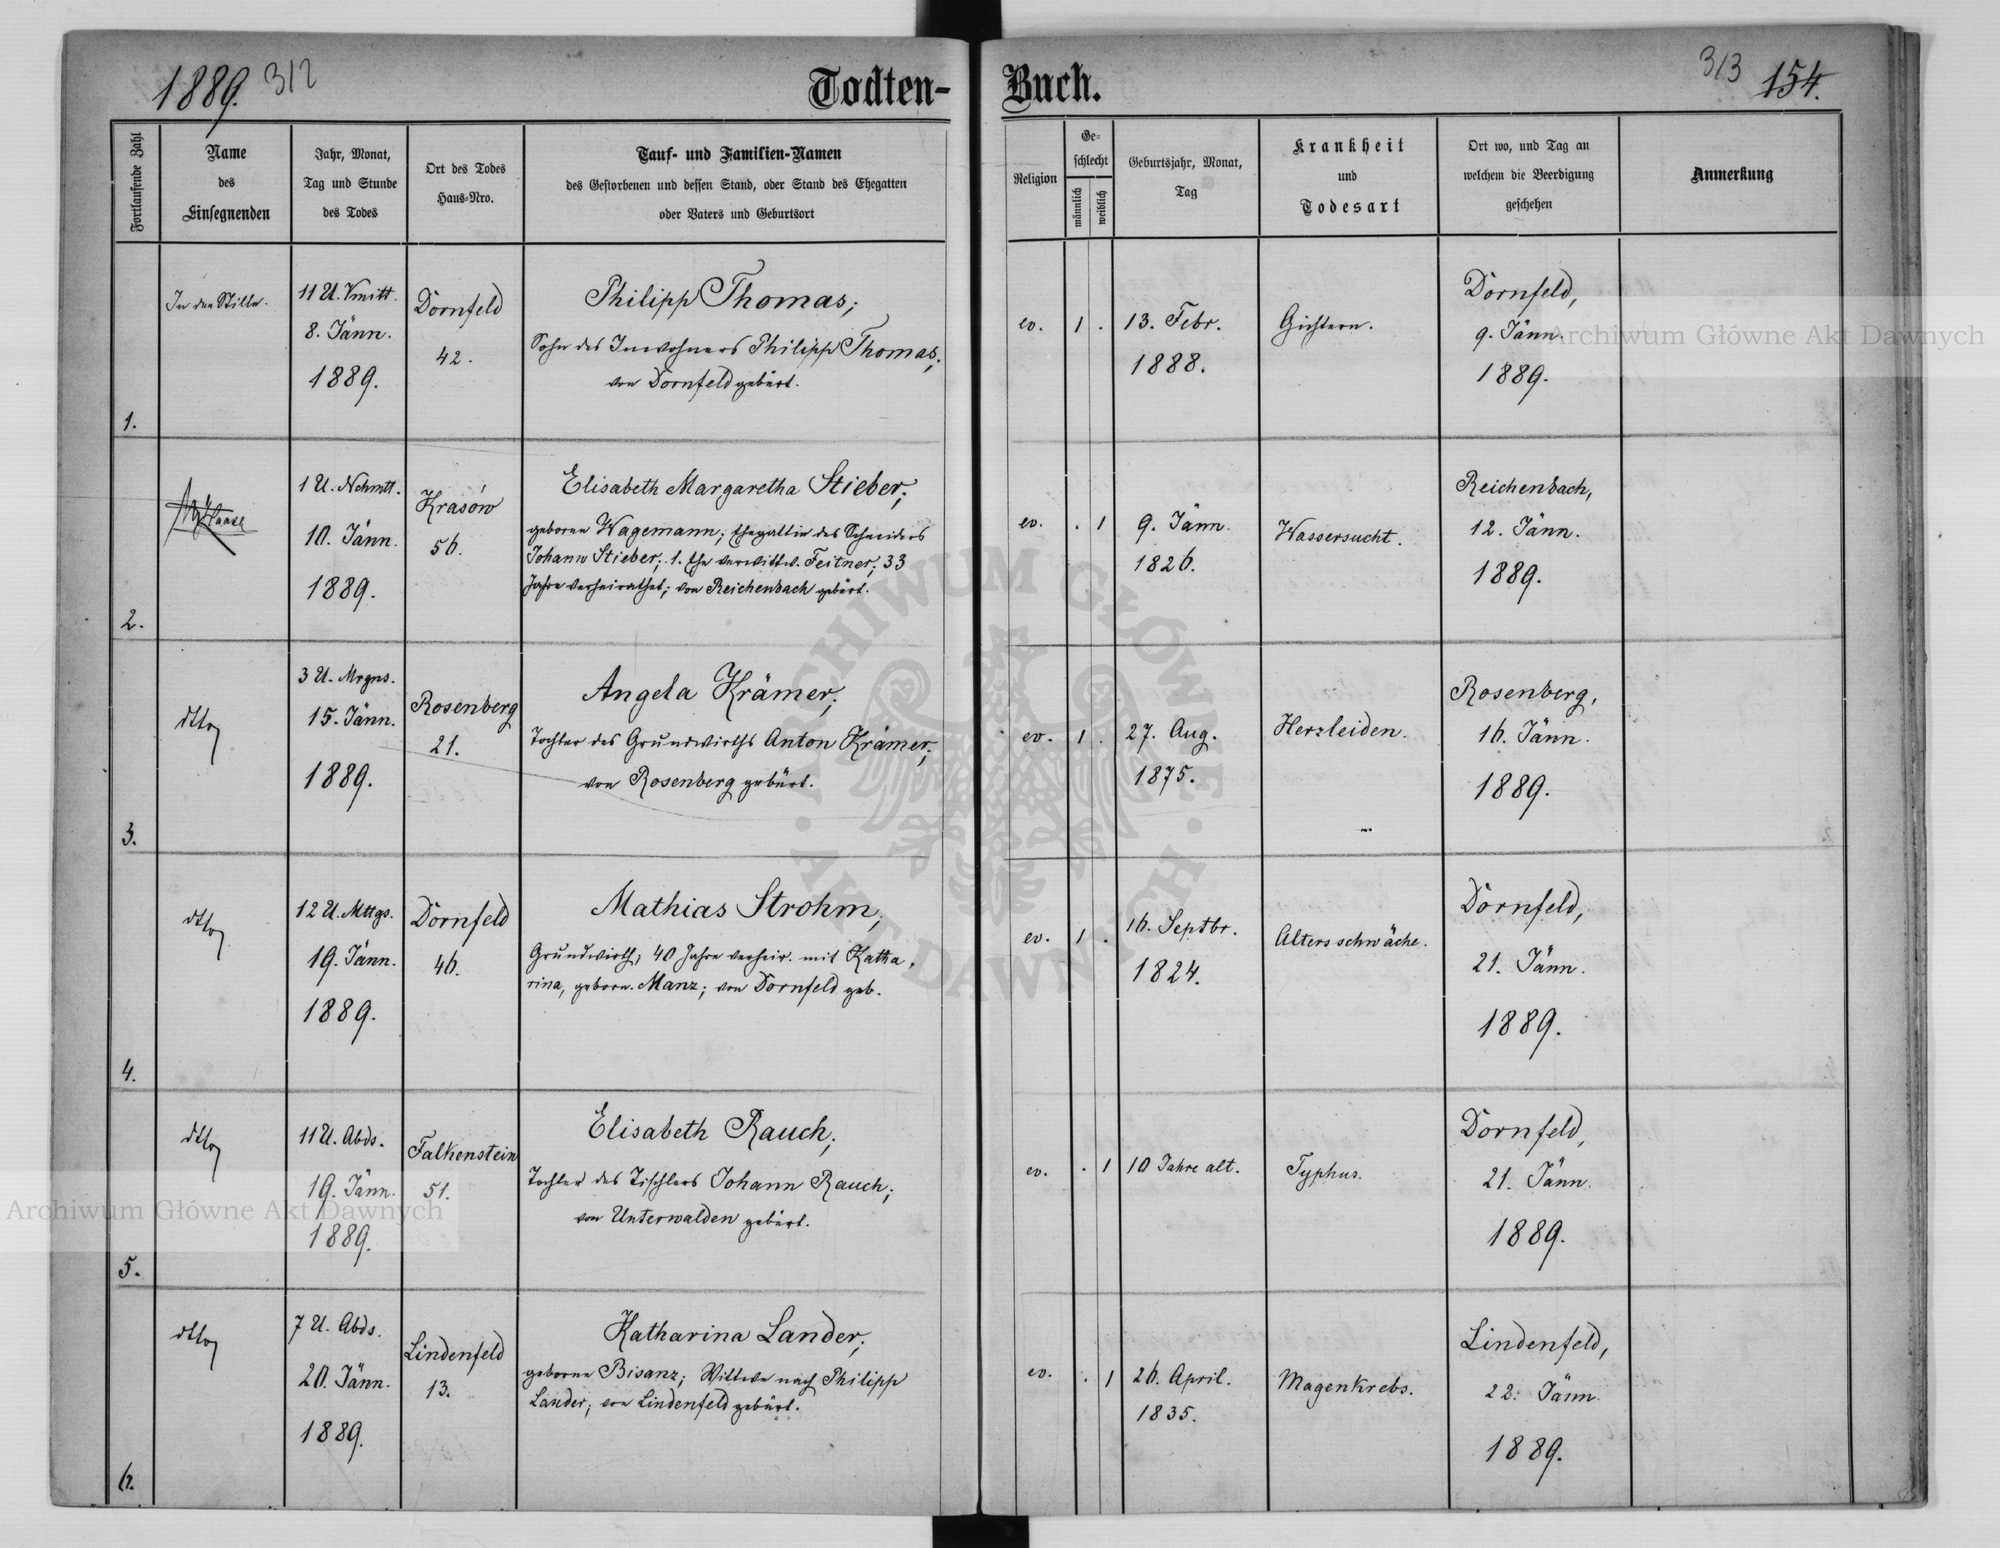 1889. 312
Todten-
Buch.
313 154.
Fortlaufende Zahl
Name
des
Einsegnenden
Jahr, Monat,
Tag und Stunde
des Todes
Ort des Todes
Haus-Nro.
Tauf- und Familien-Namen
des Gestorbenen und dessen Stand, oder Stand des Ehegatten
oder Vaters und Geburtsort
Religion
Ge-
schlecht
männlich
weiblich
Geburtsjahr, Monat,
Tag
Krankheit
und
Todesart
Ort wo, und Tag an
welchem die Beerdigung
geschehen
Anmerkung
1.
In der Stille.
11 U. Vmitt.
8. Jänn.
1889.
Dornfeld
42.
Philipp Thomas;
Sohn des Inwohners Philipp Thomas;
von Dornfeld gebürt.
ev.
1 .
13. Febr.
1888.
Gichtern.
Dornfeld,
9. Jänn.
1889.
2.
1 U. Nchmtt.
10. Jänn.
1889.
Krasów
56.
Elisabeth Margaretha Stieber;
geborne Wagemann; Ehegattin des Schneiders
Johann Stieber; 1. Ehe verwittw. Feitner; 33
Jahre verheirathet; von Reichenbach gebürt.
ev.
. 1
9. Jänn.
1826.
Wassersucht.
Reichenbach,
12. Jänn.
1889.
3.
dtto
3 U. Mrgns.
15. Jänn.
1889.
Rosenberg
21.
Angela Krämer;
Tochter des Grundwirths Anton Krämer;
von Rosenberg gebürt.
ev.
1 .
27. Aug.
1875.
Herzleiden.
Rosenberg,
16. Jänn.
1889.
4.
dtto
12 U. Mttgs.
19. Jänn.
1889.
Dornfeld
46.
Mathias Strohm;
Grundwirth; 40 Jahre verheir. mit Katha-
rina, geborn. Manz; von Dornfeld geb.
ev.
1 .
16. Septbr.
1824.
Altersschwäche.
Dornfeld,
21. Jänn.
1889.
5.
dtto
11 U. Abds.
19. Jänn.
1889.
Falkenstein
51.
Elisabeth Rauch;
Tochter des Tischlers Johann Rauch;
von Unterwalden gebürt.
ev.
. 1
10 Jahre alt.
Typhus.
Dornfeld,
21. Jänn.
1889.
6.
dtto
7 U. Abds.
20. Jänn.
1889.
Lindenfeld
13.
Katharina Lander;
geborne Bisanz; Wittwe nach Philipp
Lander; von Lindenfeld gebürt.
ev.
. 1
26. April.
1835.
Magenkrebs.
Lindenfeld,
22. Jänn.
1889.
Archiwum Główne Akt Dawnych
Archiwum Główne Akt Dawnych
ARCHIWUM GŁÓWNE · AKT DAWNYCH ·